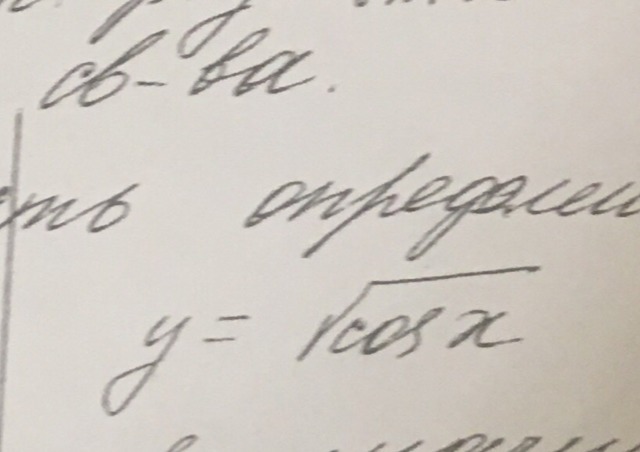 св-ва.
сть определен
y = √cos x